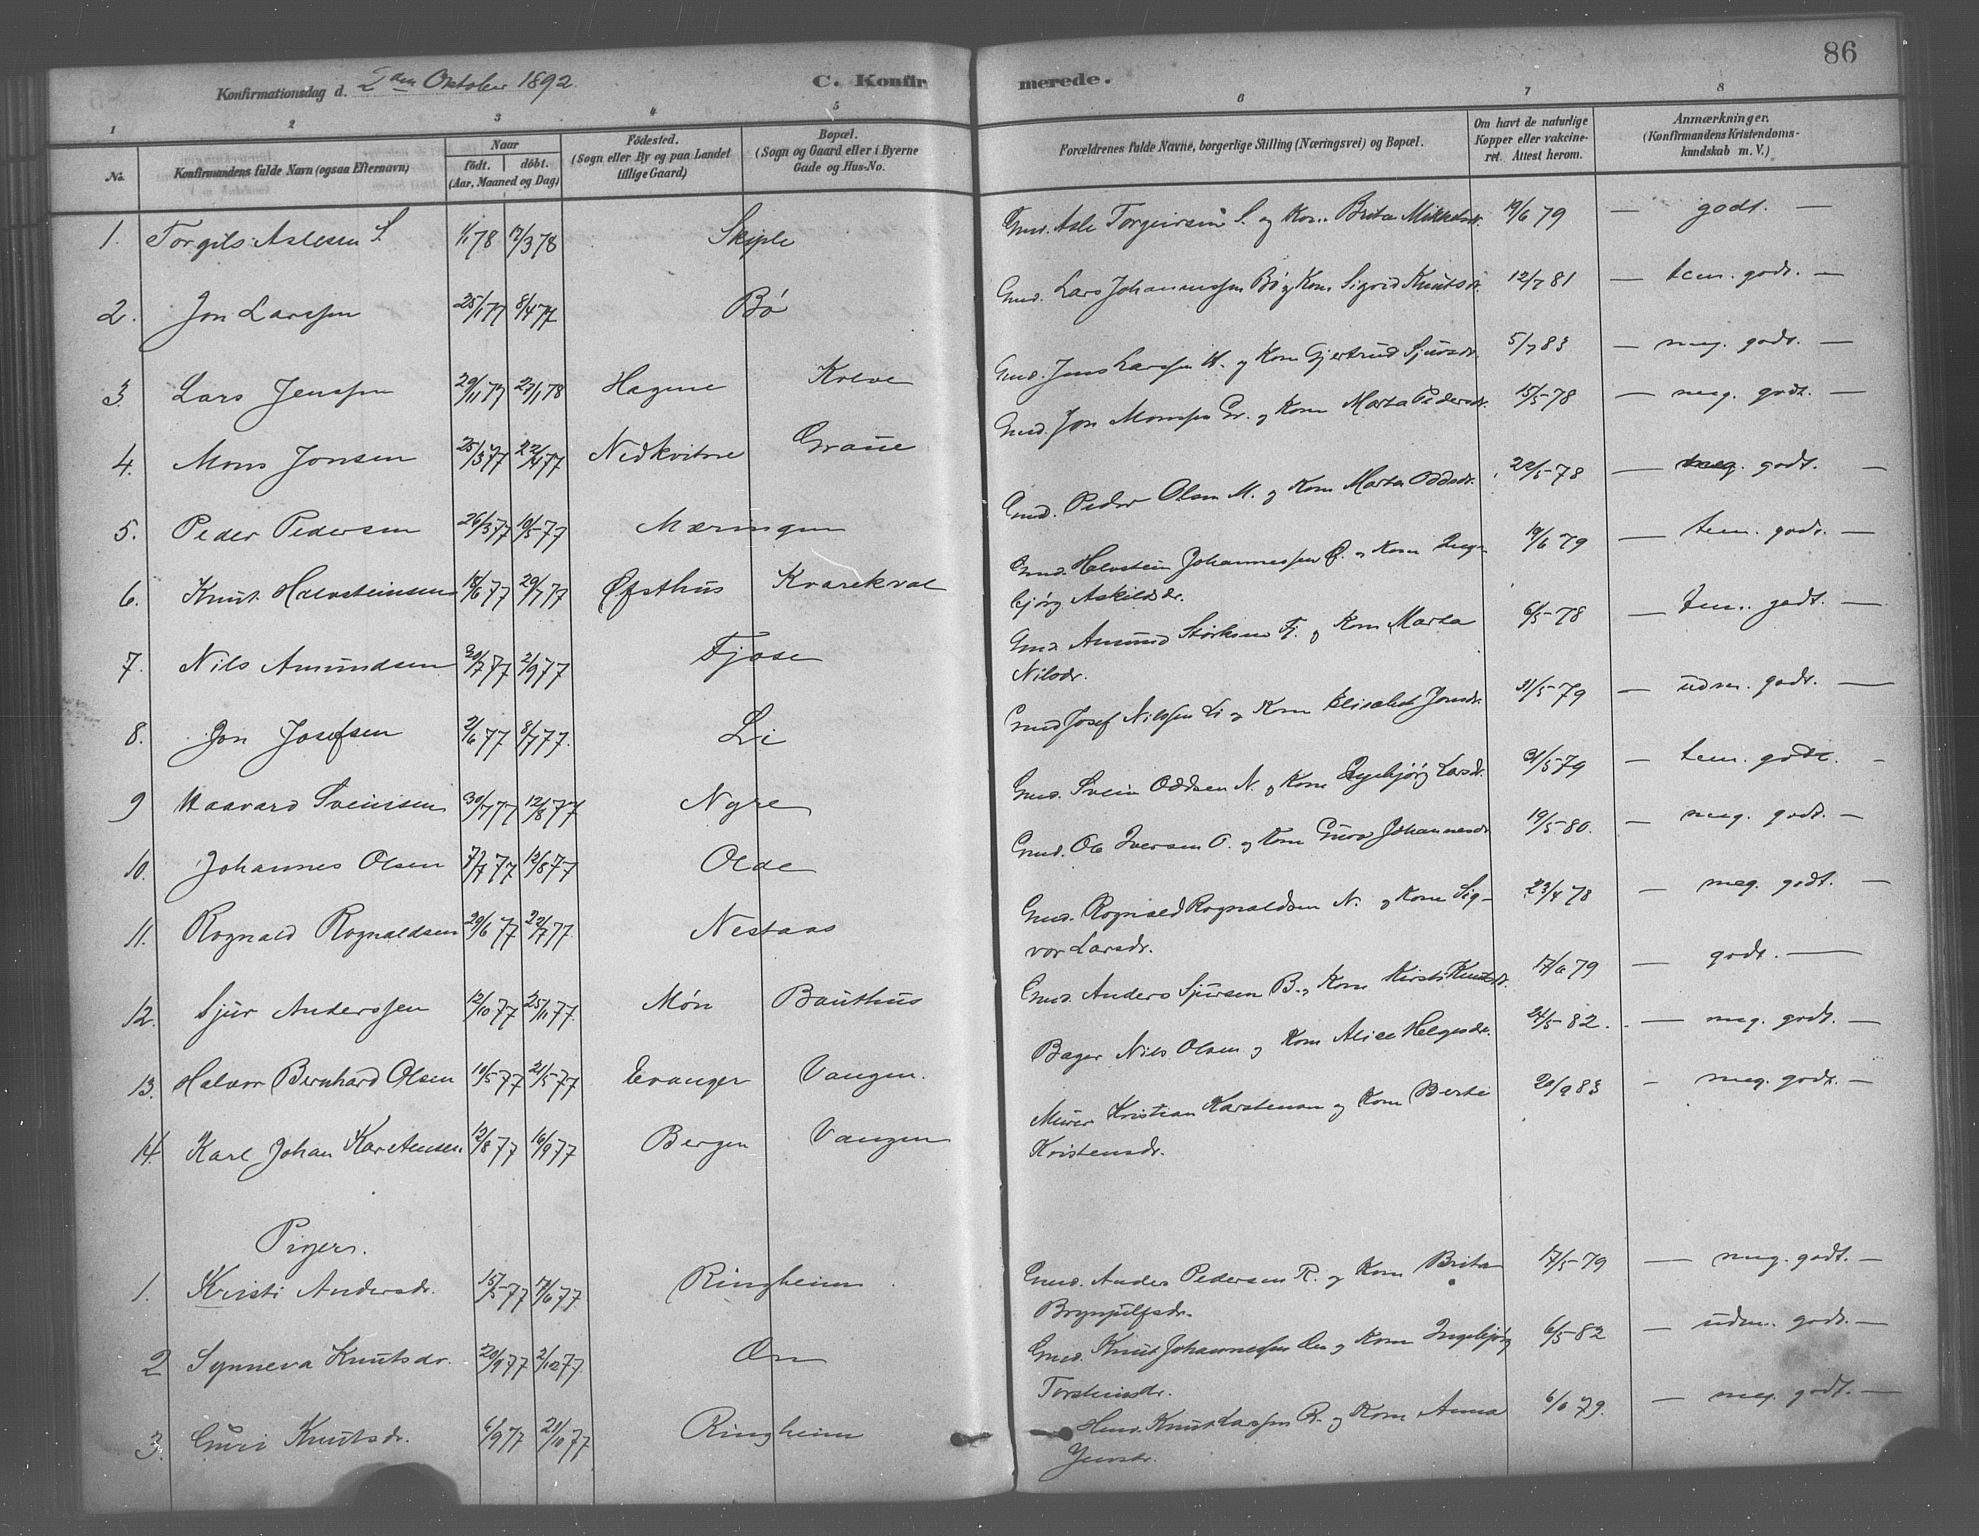 86
Konfirmationsdag d. 2den Oktober 1892.
C. Konfirmerede.
1 2 3 4 5 6 7 8
No.
Konfirmandens fulde Navn (ogsaa Efternavn)
Naar
födt. döbt.
(Aar, Maaned og Dag)
Födested.
(Sogn eller By og paa Landet
tillige Gaard)
Bopæl.
(Sogn og Gaard eller i Byerne
Gade og Hus-No.
Forældrenes fulde Navne, borgerlige Stilling (Næringsvei) og Bopæl.
Om havt de naturlige
Kopper eller vakcine-
ret. Attest herom.
Anmærkninger.
(Konfirmandens Kristendoms-
kundskab m. V.)
1. Torgils Aslesen S. 78 /3 78 Skiple Gmd. Asle Torgeirsen S. og Kone Brita Mikkelsdr. 19/6 79 — godt. —
2. Jon Larssen 25/1 77 8/4 77 Bø Gmd. Lars Johannessen Bø og Kone Sigrid Knutsdr. 12/7 81 — tem. godt. —
3. Lars Jenssen 29/11 77 27/1 78 Hagene Kolve Gmd. Jens Larssen H. og Kone Gjertrud Sjursdr. 5/7 83 — meg. godt. —
4. Mons Jonsen 25/3 77 22/4 77 Nedkvitne Graue Gmd. Jon Monssen Gr. og Kone Marta Pedersdr. 15/5 78 — meg. godt. —
5. Peder Pedersen 26/3 77 10/5 77 Mæringen Gmd. Peder Olsen M. og Kone Marta Oddsdr. 22/5 78 — meg. godt. —
6. Knut Halvsteinsen 18/6 77 29/7 77 Øfsthus Kvarekval Gmd. Halvstein Johannessen Ø. og Kone Inge-
bjørg Askildsdr. 19/6 79 — tem. godt. —
7. Nils Amundsen 30/7 77 2/9 77 Fjose Gmd. Amund Størksen Fj. og Kone Marta
Nilsdr. 6/5 78 — tem. godt. —
8. Jon Josefsen 2/6 77 8/7 77. Li Gmd Josef Nilssen Li og Kone Elisabet Jonsdr. 31/5 79 — udm. godt. —
9 Haavard Sveinsen 30/7 77 12/8 77 Nyre Gmd. Svein Oddsen N. og Kone Ingebjørg Larsdr. 31/5 79 — tem. godt. —
10. Johannes Olsen 7/7 77 12/8 77 Olde Gmd. Ole Iversen O. og Kone Guro Johannesdr. 19/5 80. — meg. godt. —
11. Rognald Rognaldsen 29/6 77 22/7 77. Nestaas Gmd. Rognald Rognaldsen N. og Kone Sig-
vor Larsdr. 23/4 78 — meg. godt. —
12. Sjur Anderssen 12/10 77 25/11 77. Møn Bauthus Gmd. Anders Sjursen B. og Kone Kirsti Knutsdr. 17/6 79 — godt. —
13. Halvor Bernhard Olsen 10/5 77 21/5 77 Evanger Vangen. Bager Nils Olsen og Kone Alice Helgesdr. 24/5 82. — meg. godt. —
14. Karl Johan Karstensen 12/8 77 16/9 77 Bergen Vangen Murer Kristian Karstensen og Kone Berte
Kristensdr. 20/9 83 — meg. godt. —
Piger.
1. Kristi Andersdr. 15/5 77 17/6 77 Ringheim Gmd. Anders Pedersen R. og Kone Brita
Brynjulfsdr. 17/5 79 — meg. godt. —
2 Synneva Knutsdr. 20/9 77 2/12 77. On Gmd. Knut Johannessen On og Kone Ingebjørg
Torsteinsdr. 6/5 82 — udm. godt. —
3. Guri Knutsdr. 6/9 77 21/10 77 Ringheim Hmd. Knut Larssen R. og Kone Anna
Jensdr. 6/6 79. — meg. godt. —